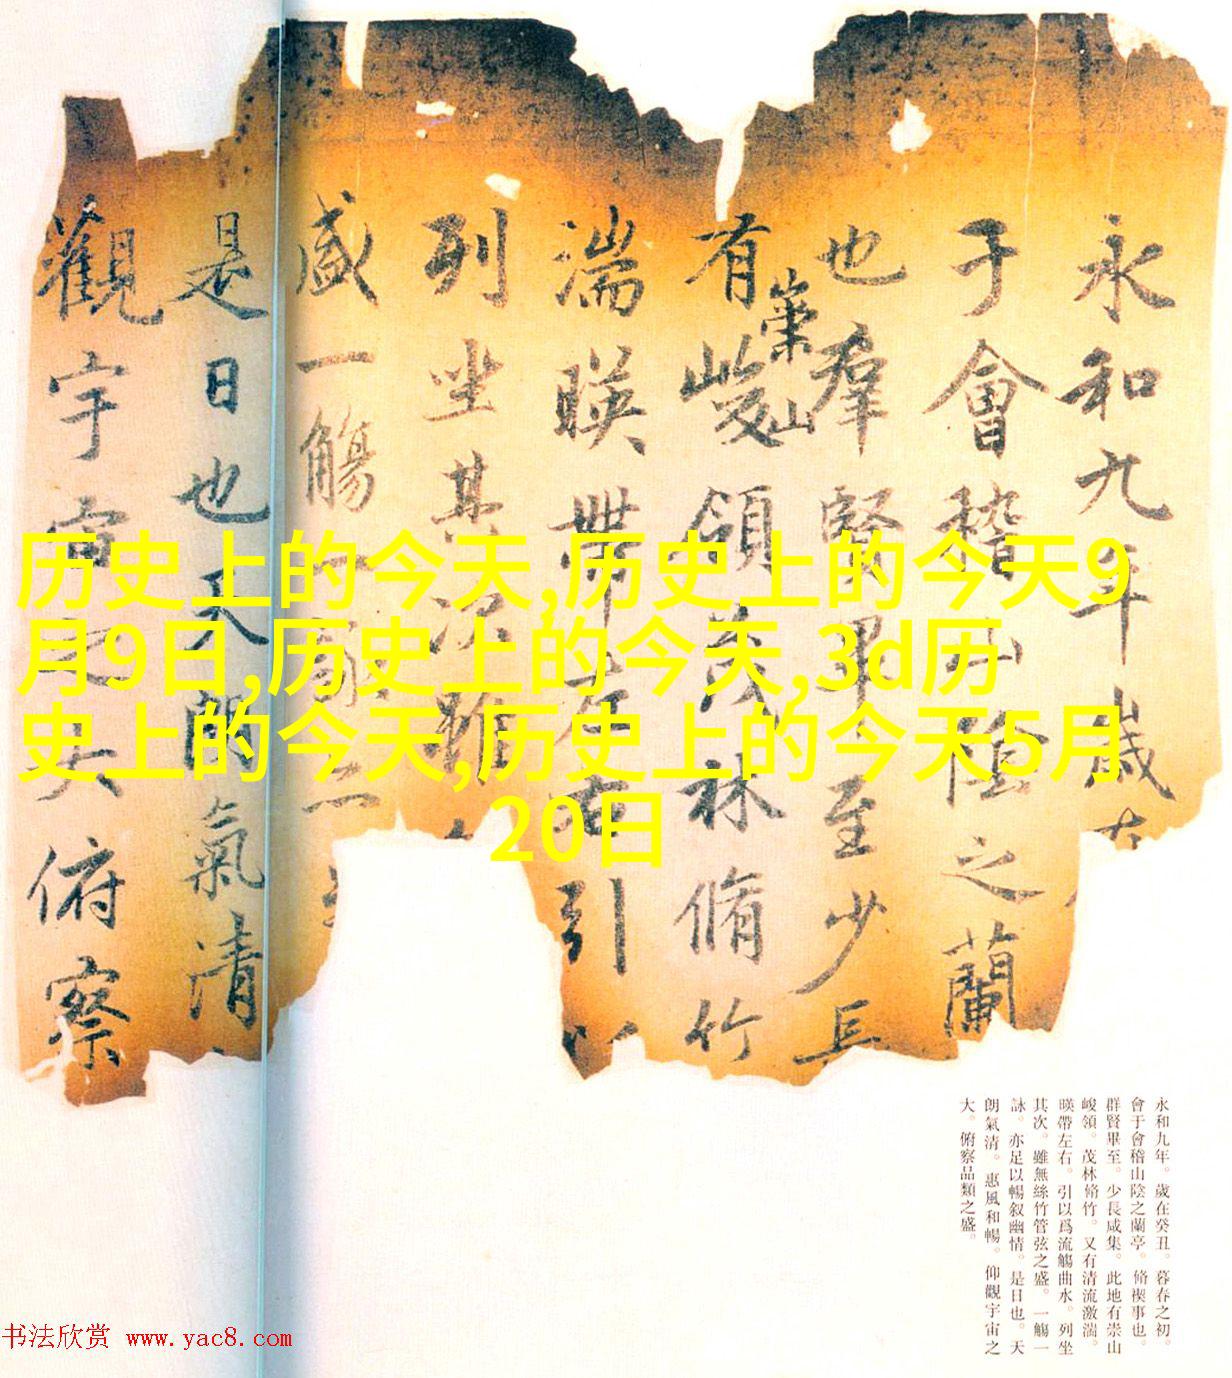 永和九年歲在
于會稽山陰之蘭
也羣賢畢至少長
有崇山峻領茂林脩竹
湍暎帶左右引以
列坐其次雖
盛一觴一詠亦
是日也天朗氣清
觀宇宙之大俯察
历史上的今天,历史上的今天9
月9日,历史上的今天,3d历
史上的今天,历史上的今天5月
20日
永和九年。歲在癸丑。暮春之初。
會于會稽山陰之蘭亭。脩禊事也。
群賢畢至。少長咸集。此地有崇山
峻領。茂林脩竹。又有清流激湍。
暎帶左右。引以爲流觴曲水。列坐
其次。雖無絲竹管弦之盛。一觴一
詠。亦足以暢叙幽情。是日也。天
朗氣清。惠風和暢。仰觀宇宙之
大。俯察品類之盛。
书法欣赏 www.yac8.com